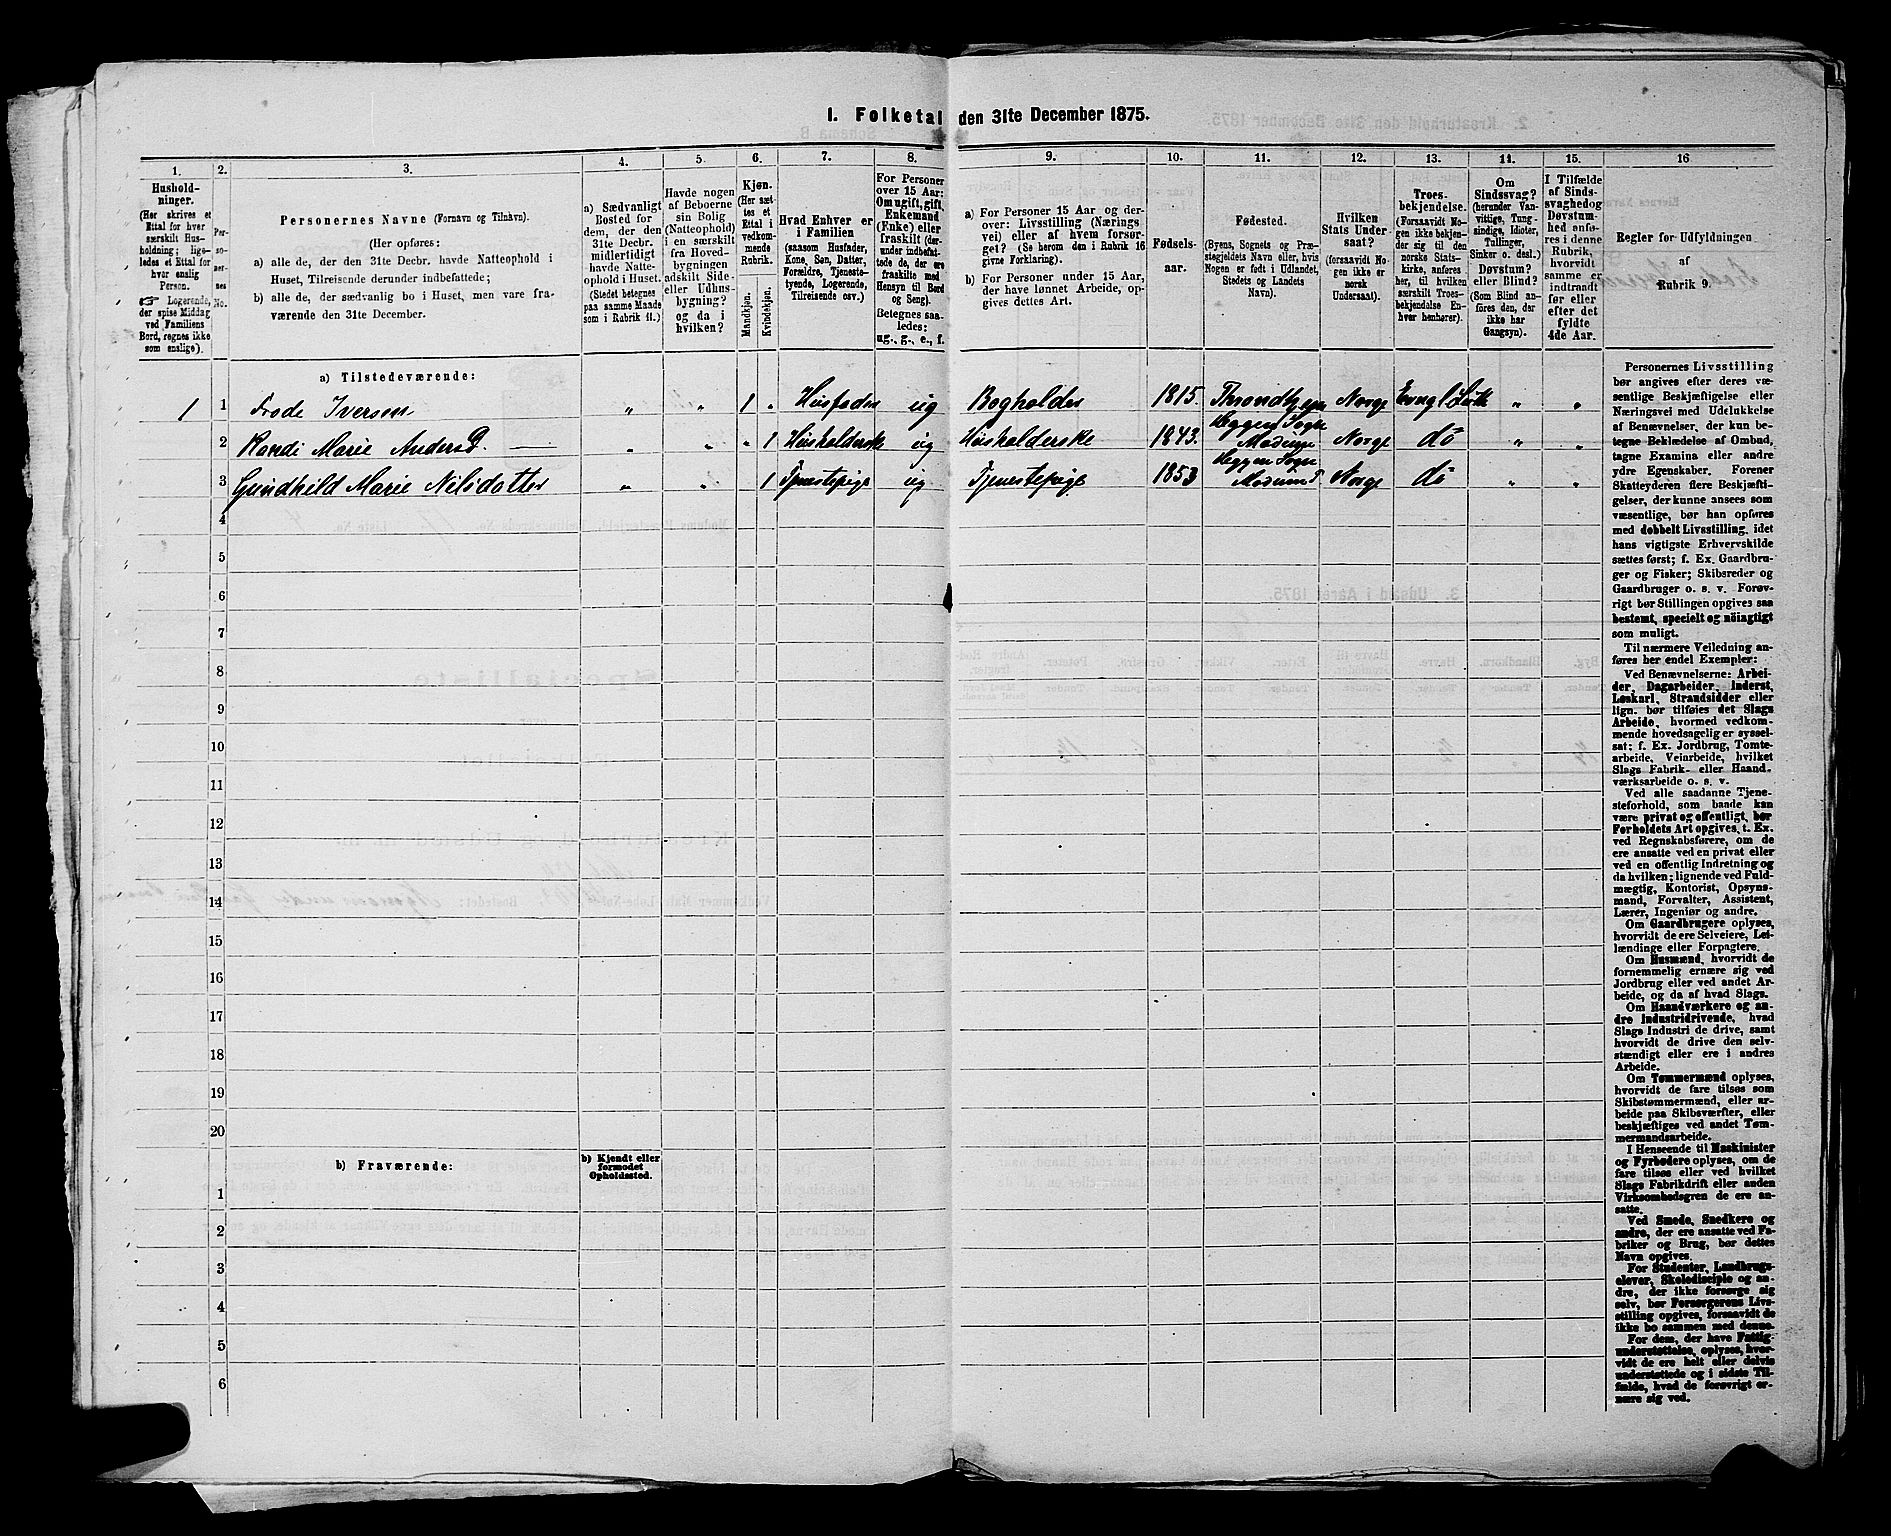 I. Folketal den 31te December 1875.
1.
Hushold-
ninger.
(Her skrives et
Ettal for hver
særskilt Hus-
holdning; lige-
ledes et Ettal for
hver enslig
Person.
☞ Logerende,
der spise Middag
ved Familiens
Bord, regnes ikke
som enslige).
2.
Per-
so-
ner-
nes
No.
3.
Personernes Navne (Fornavn og Tilnavn).
(Her opføres:
a) alle de, der den 31te Decbr. havde Natteophold i
Huset, Tilreisende derunder indbefattede;
b) alle de, der sædvanlig bo i Huset, men vare fra-
værende den 31te December.
4.
a) Sædvanligt
Bosted for
dem, der den
31te Decbr.
midlertidigt
havde Natte-
ophold i Huset.
(Stedet betegnes
paa samme Maade
som i Rubrik 11.)
5.
Havde nogen
af Beboerne
sin Bolig
(Natteophold)
i en særskilt
fra Hoved-
bygningen
adskilt Side-
eller Udhus-
bygning?
og da i
hvilken?
6.
Kjøn.
(Her sæt-
tes et
Ettal i
vedkom-
mende
Rubrik.
Mandkjøn.
Kvindekjøn.
7.
Hvad Enhver er
i Familien
(saasom Husfader,
Kone, Søn, Datter,
Forældre, Tjeneste-
tyende, Logerende,
Tilreisende osv.)
8.
For Personer
over 15 Aar:
Om ugift, gift,
Enkemand
(Enke) eller
fraskilt (der-
under indbefat-
tede de, der ere
fraskilte med
Hensyn til Bord
og Seng).
Betegnes saa-
ledes:
ug., g., e., f.
9.
a) For Personer 15 Aar og der-
over: Livsstilling (Nærings
vei) eller af hvem forsør-
get? (Se herom den i Rubrik 16
givne Forklaring).
b) For Personer under 15 Aar,
der have lønnet Arbeide, op-
gives dettes Art.
10.
Fødsels-
aar.
11.
Fødested.
(Byens, Sognets og Præ-
stegjeldets Navn eller, hvis
Nogen er født i Udlandet,
Stedets og Landets
Navn).
12.
Hvilken
Stats Under-
saat?
(forsaavidt No-
gen ikke er
norsk
Undersaat).
13.
Troes-
bekjendelse.
(Forsaavidt No-
gen ikke bekjen-
der sig til den
norske Stats-
kirke, anføres
her, til hvilken
særskilt Troes-
bekjendelse En-
hver henhører).
14.
Om
Sindssvag?
(herunder Van-
vittige, Tung-
sindige, Idioter,
Tullinger,
Sinker o. desl.)
Døvstum?
eller Blind?
(Som Blind an-
føres den, der
ikke har
Gangsyn).
15.
I Tilfælde
af Sinds-
svaghed og
Døvstum-
hed anfø-
res i denne
Rubrik,
hvorvidt
samme er
indtraadt
før eller
efter det
fyldte
4de Aar.
16
Regler for Udfyldningen
af
Rubrik 9.
a) Tilstedeværende:
1 1 Frode Iversen „ „ 1 „ Husfader ug Bogholder 1815. Throndhjem Norge Evngl Luth „ „
2 Randi Marie AndersD. „ „ „ 1 Husholderske ug Husholderske 1843. Heggen Sogn Modum P Norge do „ „
3 Gundhild Marie Nilsdatter „ „ 1 Tjenestepige ug Tjenestepige 1853 Heggen Sogn Modum P Norge do „ „
4
5
6
7
8
9
10
11
12
13
14
15
16
17
18
19
20
b) Fraværende:
b) Kjendt eller
formodet
Opholdssted.
1
2
3
4
5
6
Personernes Livsstilling
bør angives efter deres væ-
sentlige Beskjæftigelse eller
Næringsvei med Udelukkelse
af Benævnelser, der kun be-
tegne Beklædelse af Ombud,
tagne Examina eller andre
ydre Egenskaber. Forener
Skatteyderen flere Beskjæfti-
gelser, der kunne ansees som
væsentlige, bør han opføres
med dobbelt Livsstilling, idet
hans vigtigste Erhvervskilde
sættes først; f. Ex. Gaardbru-
ger og Fisker; Skibsreder og
Gaardbruger o. s. v. Forøv-
rigt bør Stillingen opgives saa
bestemt, specielt og nöiagtigt
som muligt.
Til nærmere Veiledning an-
føres her endel Exempler:
Ved Benævnelserne: Arbei-
der, Dagarbeider, Inderst,
Løskarl, Strandsidder eller
lign. bør tilføies det Slags
Arbeide, hvormed vedkom-
mende hovedsagelig er syssel-
sat; f. Ex. Jordbrug, Tomte-
arbeide, Veiarbeide, hvilket
Slags Fabrik- eller Haand-
værksarbeide o. s. v.
Ved alle saadanne Tjene-
steforhold, som baade kan
være privat og offentligt, bør
Forholdets Art opgives, t. Ex.
ved Regnskabsførere, om de
ere ansatte ved en privat eller
ved en offentlig Indretning og
da hvilken; lignende ved Fuld-
mægtig, Kontorist, Opsyns-
mand, Forvalter, Assistent,
Lærer, Ingeniør og andre.
Om Gaardbrugere oplyses,
hvorvidt de ere Selveiere, Lei-
lændinge eller Forpagtere.
Om Husmænd, hvorvidt de
fornemmelig ernære sig ved
Jordbrug eller ved andet Ar-
beide, og da af hvad Slags.
Om Haandværkere og an-
dre Industridrivende, hvad
Slags Industri de drive, samt
hvorvidt de drive den selv-
stændigt eller ere i andres
Arbeide.
Om Tømmermænd oplyses,
hvorvidt de fare tilsøs som
Skibstømmermænd, eller ar-
beide paa Skibsværfter, eller
beskjæftiges ved andet Tøm-
mermandsarbeide.
I Henseende til Maskinister
og Fyrbødere oplyses, om de
fare tilsøs eller ved hvilket
Slags Fabrikdrift eller anden
Virksomhedsgren de ere an-
satte.
Ved Smede, Snedkere og
andre, der ere ansatte ved Fa-
briker og Brug, bør dettes
Navn opgives.
For Studenter, Landbrugs-
elever, Skoledisciple og an-
dre, der ikke forsørge sig
selv, bør Forsørgerens Livs-
stilling opgives, forsaavidt de
ikke bo sammen med denne.
For dem, der have Fattig-
understøttelse, oplyses, hvor-
vidt de ere helt eller delvis
understøttede og i sidste Til-
fælde, hvad de forøvrigt er-
nære sig ved.